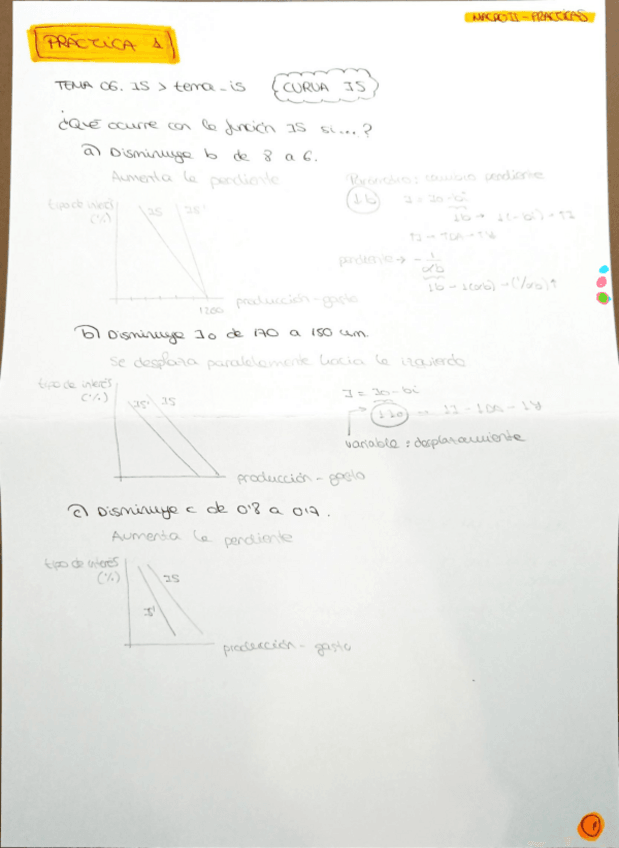 MACRO II - PRÁCTICAS
PRÁCTICA 1
TEMA 06. IS > tema_is
CURVA IS
¿Qué ocurre con la función IS si...?
a) Disminuye b de 8 a 6.
Aumenta la pendiente
Parámetro: cambio pendiente
tipo de interés
(%)
IS
IS'
↓b
I = Io - bi
pendiente → - 1/αb
1200
producción - gasto
b) Disminuye Io de 170 a 150 um.
Se desplaza paralelamente hacia la izquierda
tipo de interés
(%)
IS'
IS
I = Io - bi
↓Io
variable: desplazamiento
producción - gasto
c) Disminuye c de 0'8 a 0'7.
Aumenta la pendiente
tipo de interés
(%)
IS
producción - gasto